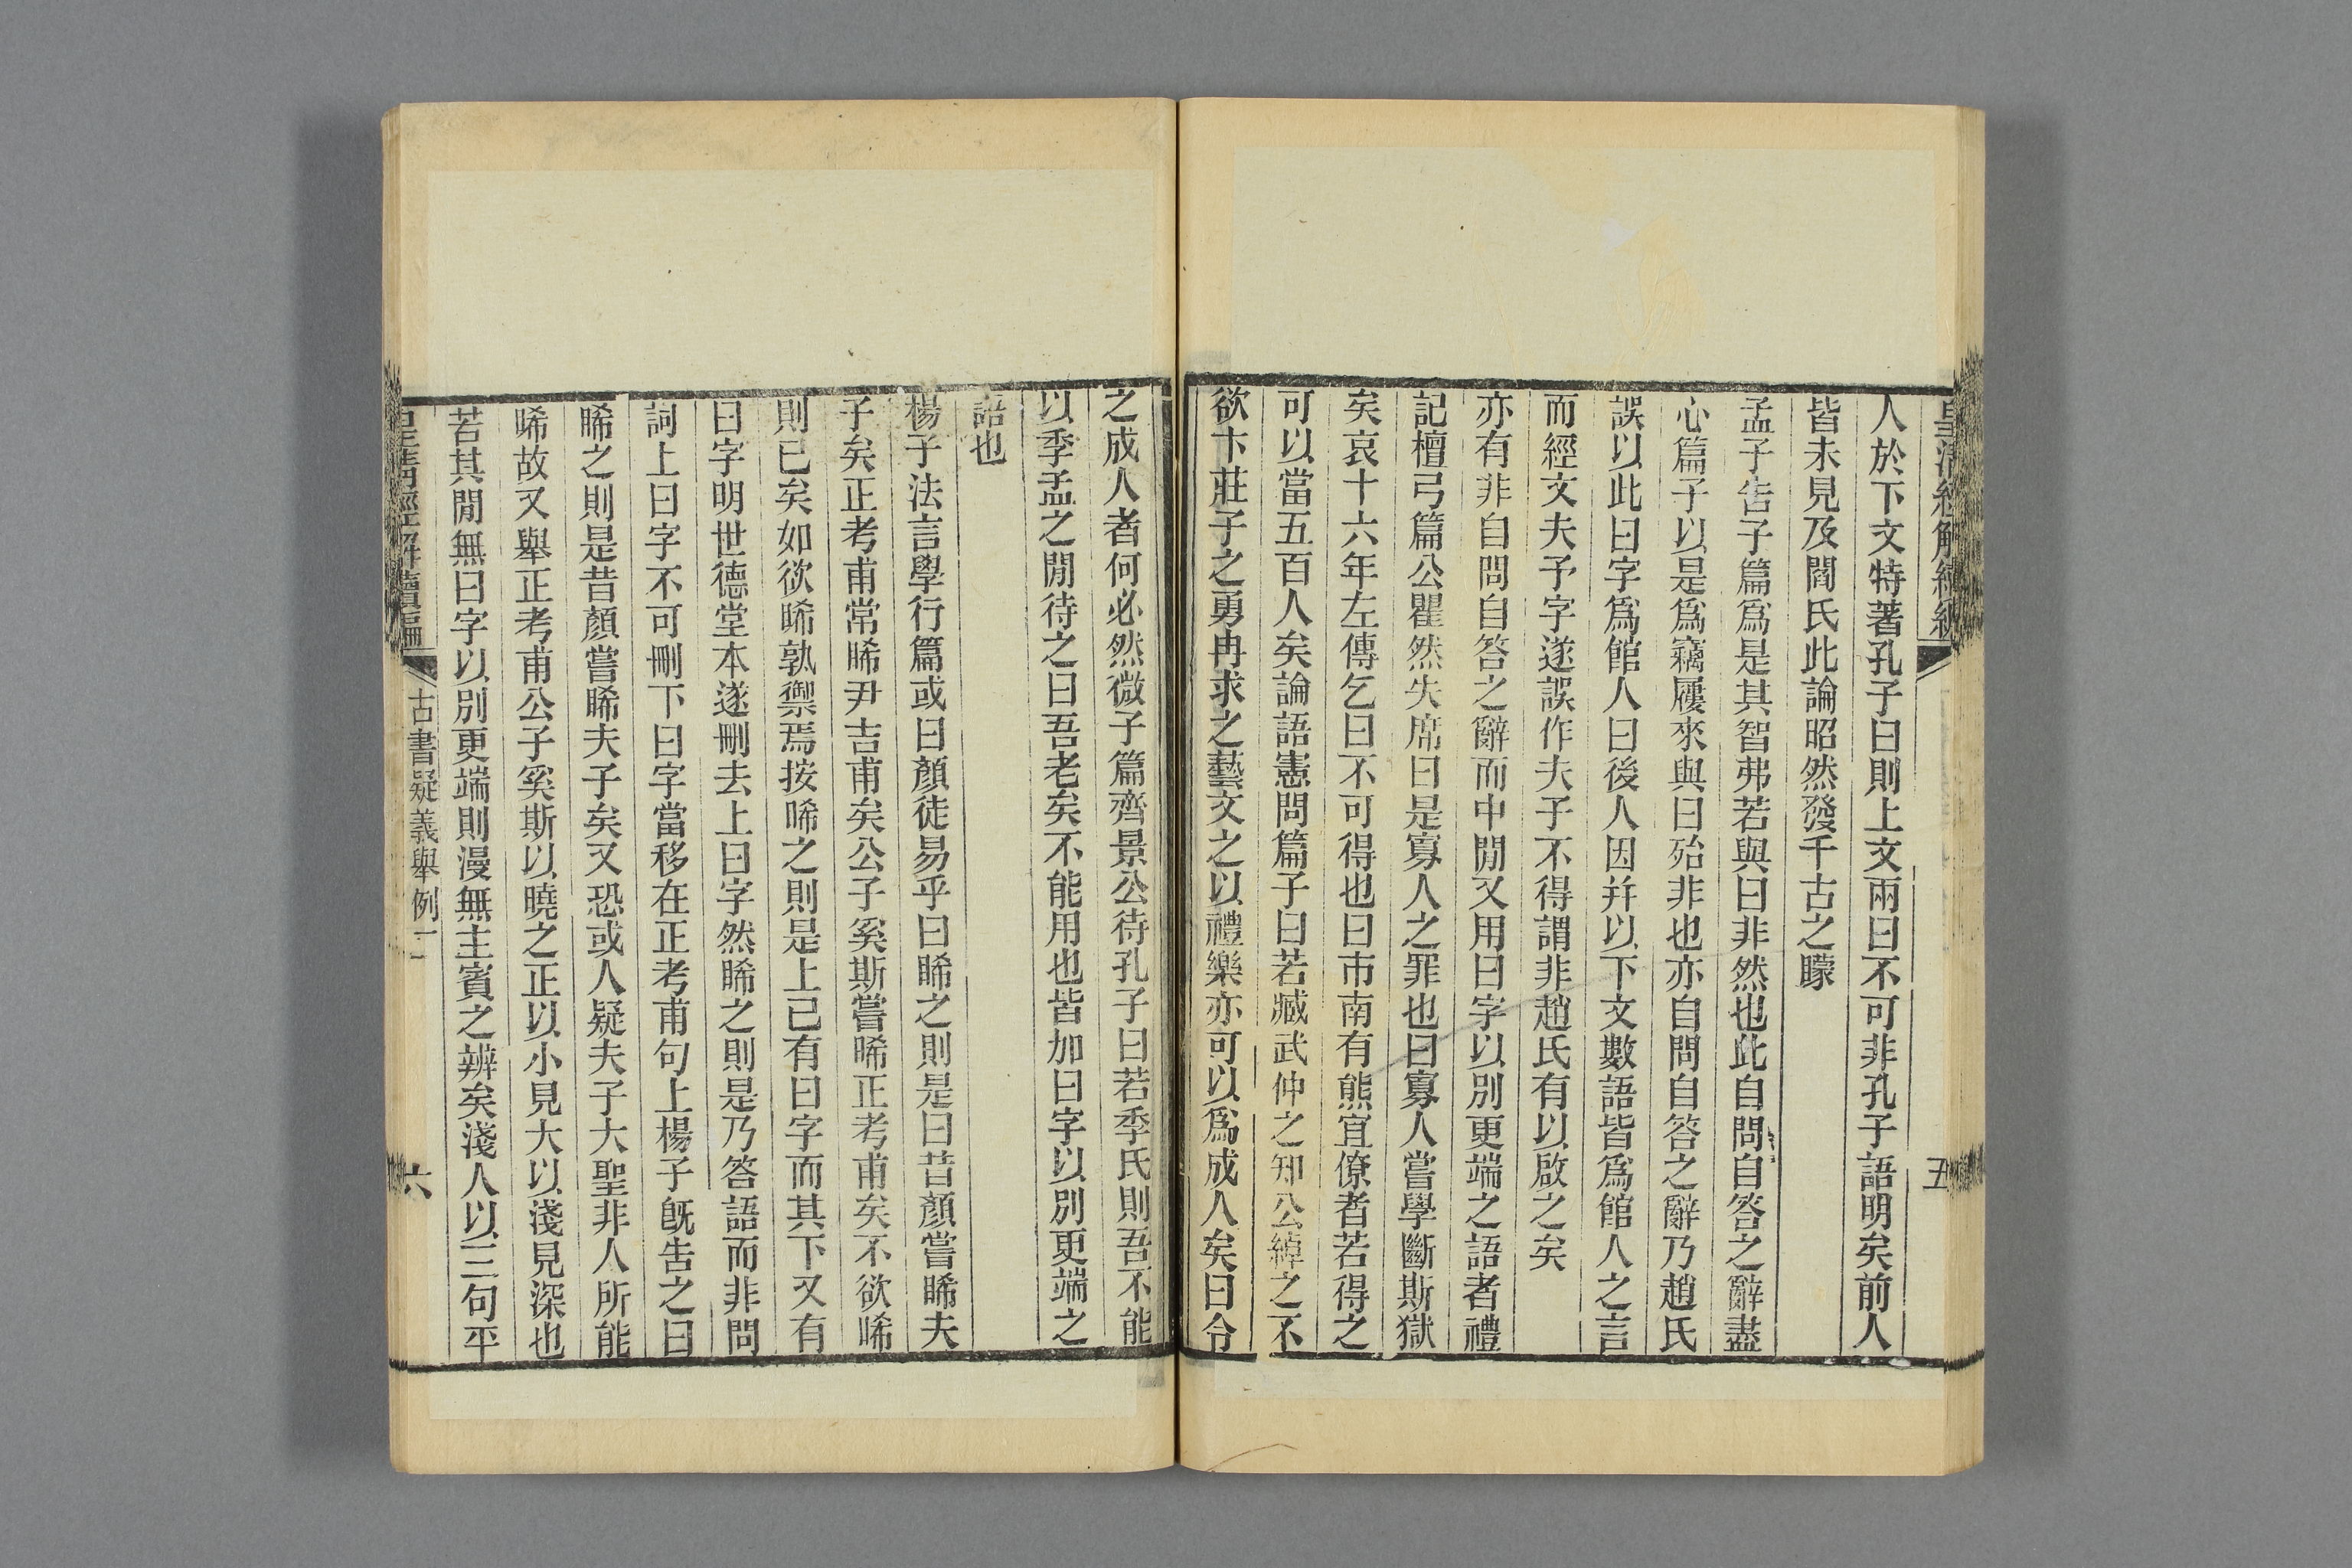 皇清經解續編
五
人於下文特著孔子曰則上文兩曰不可非孔子語明矣前人
皆未見及閻氏此論昭然發千古之矇
孟子告子篇爲是其智弗若與曰非然也此自問自答之辭盡
心篇子以是爲竊屨來與曰殆非也亦自問自答之辭乃趙氏
誤以此曰字爲館人曰後人因并以下文數語皆爲館人之言
而經文夫予字遂誤作夫子不得謂非趙氏有以啟之矣
亦有非自問自答之辭而中閒又用曰字以別更端之語者禮
記檀弓篇公瞿然失席曰是寡人之罪也曰寡人嘗學斷斯獄
矣哀十六年左傳乞曰不可得也曰市南有熊宜僚者若得之
可以當五百人矣論語憲問篇子曰若臧武仲之知公綽之不
欲卞莊子之勇冉求之藝文之以禮樂亦可以爲成人矣曰今
之成人者何必然微子篇齊景公待孔子曰若季氏則吾不能
以季孟之閒待之曰吾老矣不能用也皆加曰字以別更端之
語也
楊子法言學行篇或曰顏徒易乎曰睎之則是曰昔顏嘗睎夫
子矣正考甫常睎尹吉甫矣公子奚斯嘗睎正考甫矣不欲睎
則已矣如欲睎孰禦焉按睎之則是上已有曰字而其下又有
曰字明世德堂本遂刪去上曰字然睎之則是乃答語而非問
詞上曰字不可刪下曰字當移在正考甫句上楊子既告之曰
睎之則是昔顏嘗睎夫子矣又恐或人疑夫子大聖非人所能
睎故又舉正考甫公子奚斯以曉之正以小見大以淺見深也
若其閒無曰字以別更端則漫無主賓之辨矣淺人以三句平
皇清經解續編
古書疑義舉例一
六